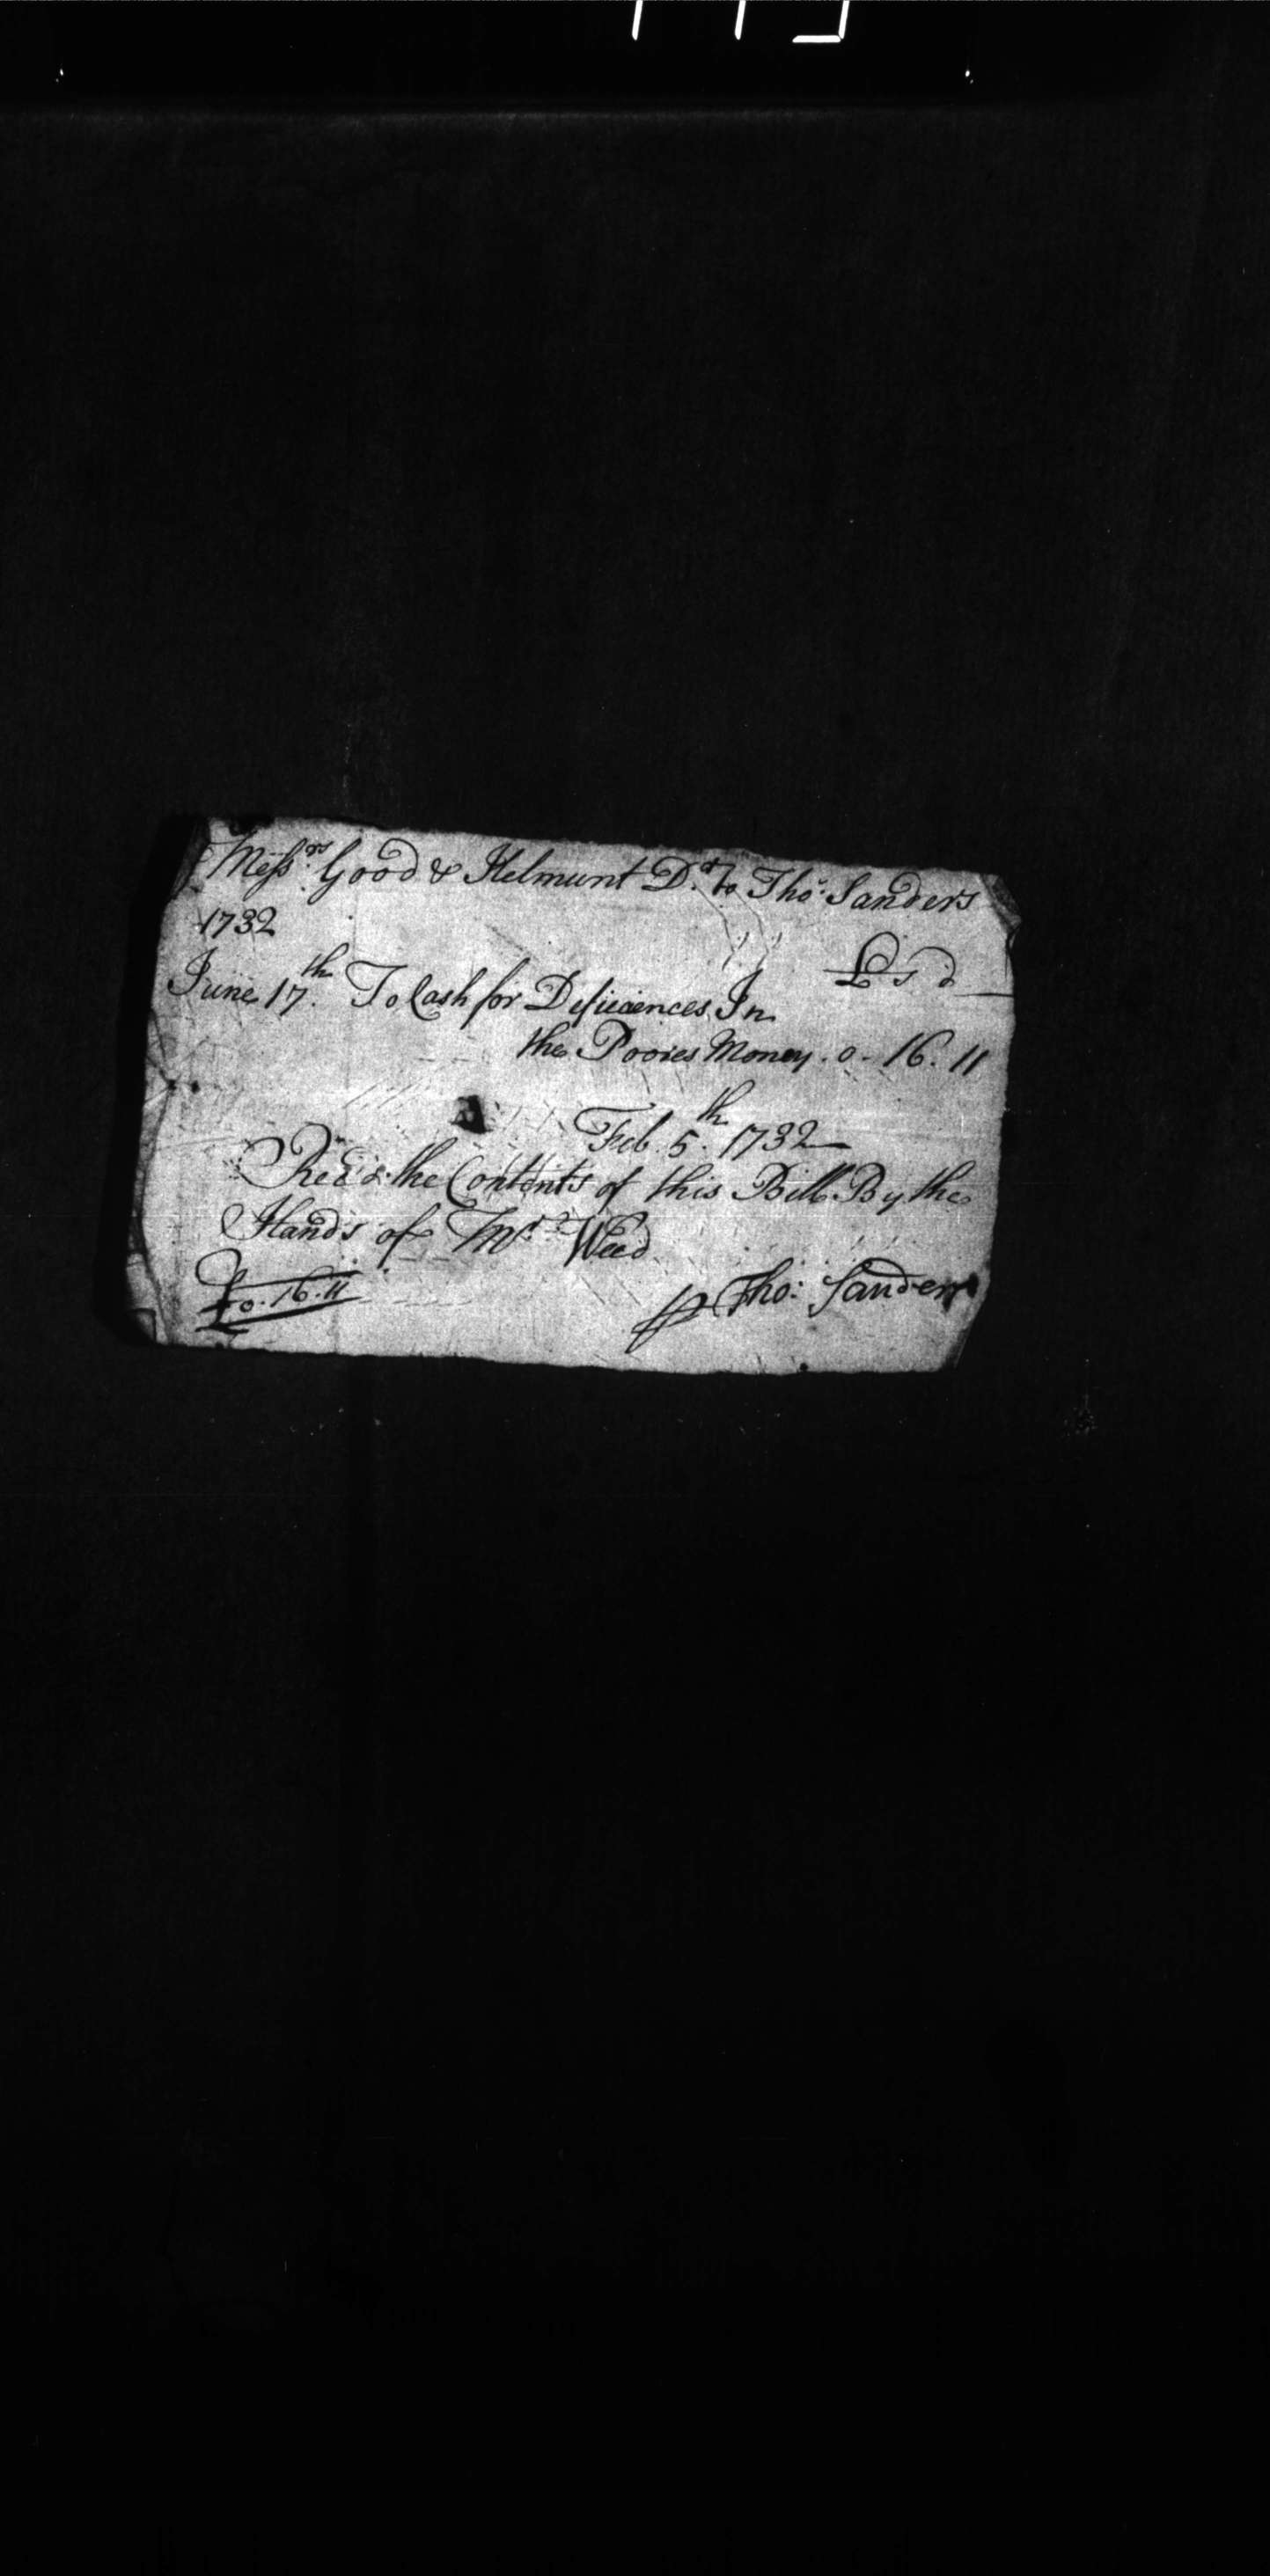 Messrs. Good & Helmunt Dr. to Tho: Sanders
1732
£ s d
June 17th. To Cash for Deficiences In
the Poores Money. 0 - 16. 11
Feb. 5th. 1732
Rec'd the Contents of this Bill By the
Hands of Mr. Weed
£0. 16. 11
Tho: Sanders